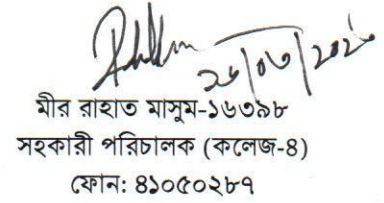 ২৬/০৩/২০২৬
মীর রাহাত মাসুম-১৬৩৯৮
সহকারী পরিচালক (কলেজ-৪)
ফোন: ৪১০৫০২৮৭